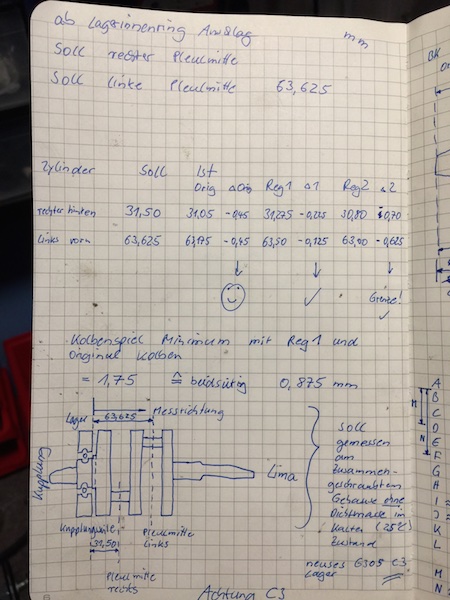 ab Lagerinnenring Anschlag mm
Soll rechter Pleulmitte
Soll linke Pleulmitte 63,625
Zylinder Soll Ist
Orig ΔOrig Reg1 Δ1 Reg2 Δ2
rechter hinten 31,50 31,05 -0,45 31,275 -0,225 30,80 -0,70
links vorn 63,625 63,175 -0,45 63,50 -0,125 63,00 -0,625
Grenze!
Kolbenspiel Minimum mit Reg1 und
original Kolben
= 1,75 ≙ beidseitig 0,875 mm
Lager
Messrichtung
63,625
Kupplung
Lima
Soll
gemessen
am
zusammen-
geschraubtem
Gehäuse ohne
Dichtmasse im
Kalten (25°C)
Zustand
neues 6305 C3
Lager
31,50
Pleulmitte
Links
Pleulmitte
rechts
Achtung C3
BK
A
B
C
D
E
F
G
H
I
J
K
L
M
N
M
N